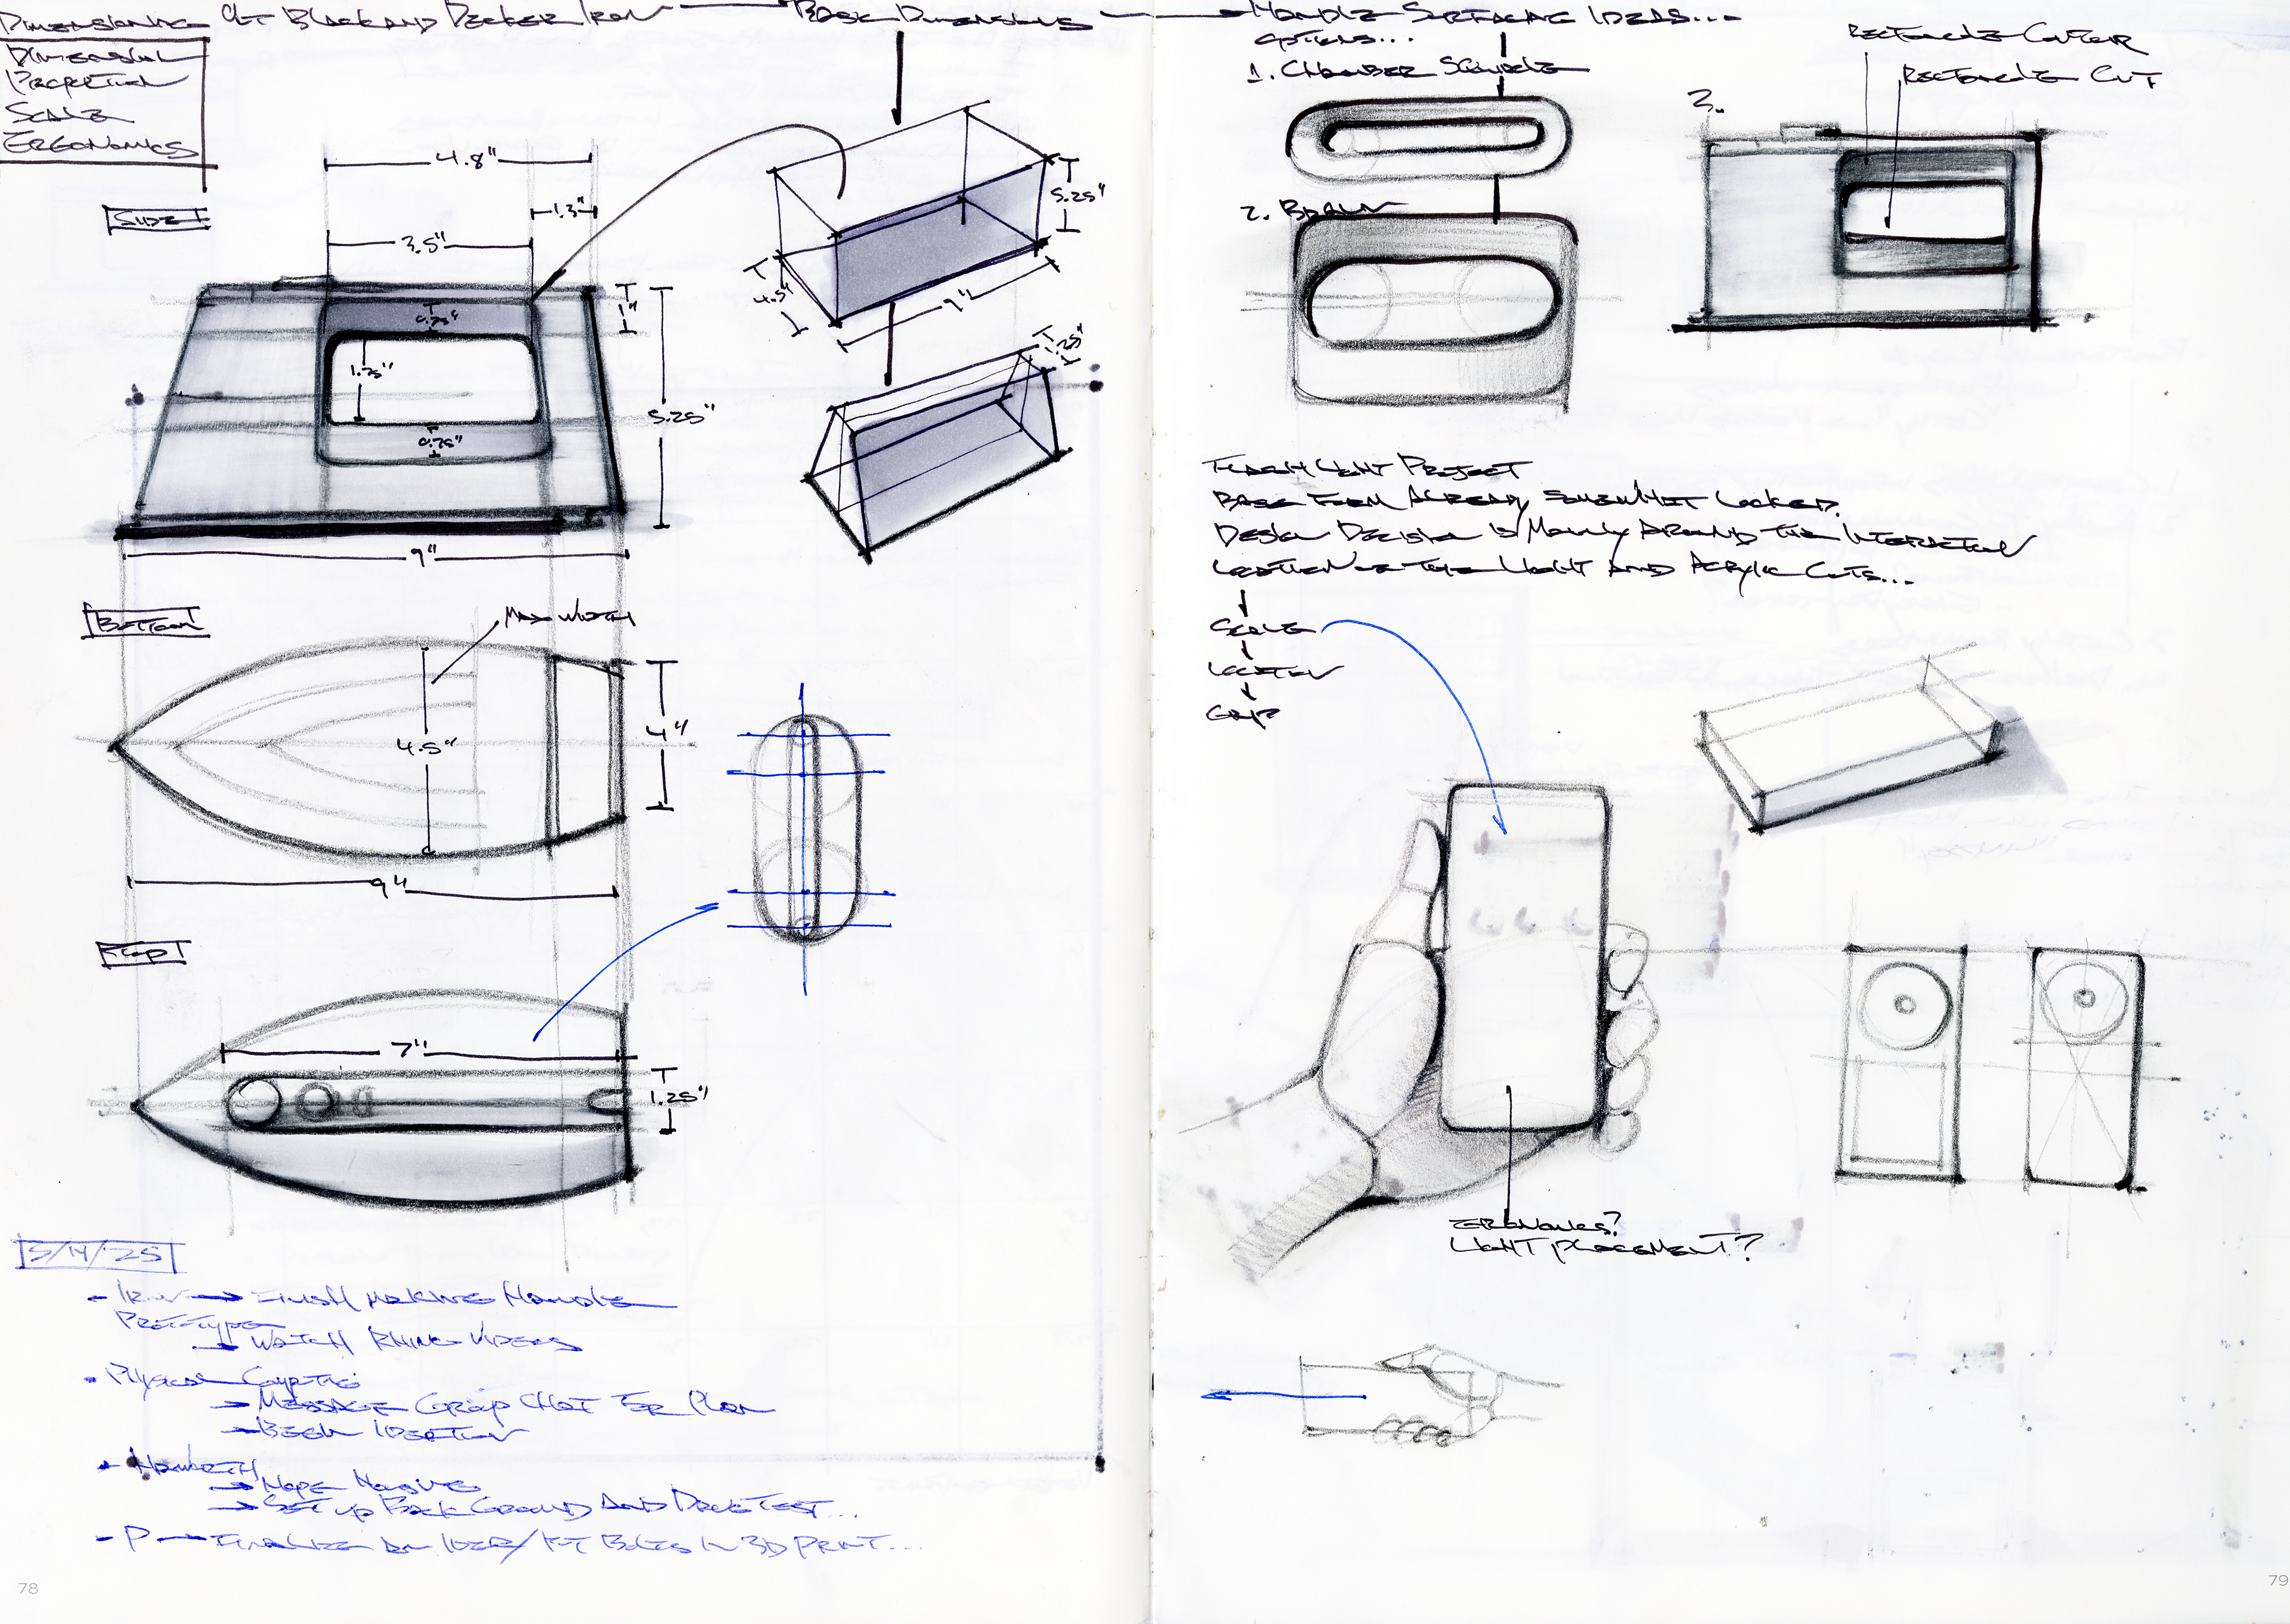 Dimensioning of Black and Decker Iron
Dimension
Proportion
Scale
Ergonomics
Base Dimensions
Side
4.8"
1.3"
3.5"
1"
0.75"
1.75"
0.75"
5.25"
9"
5.25"
4.5"
9"
1.25"
Bottom
Max Width
4.5"
4"
9"
Top
7"
1.25"
- Iron → Finish Making Handle
Prototype
→ Watch Rhino Videos
- Physical
→ Message Group Chat For Plan
→ Begin Ideation
→ Set up Back Ground And
- P → Finalize an Idea / in 3D Print...
78
Handle Surfacing Ideas...
Options...
1. Chamber
2. Braun
3.
Rectangle Contour
Rectangle Cut
Flash Light Project
Base Form Already Somewhat Locked.
Design Decision is Mainly Around the Interaction
Location of the Light and Acrylic Cuts...
Scale
Location
Grip
Ergonomics?
Light Placement?
79